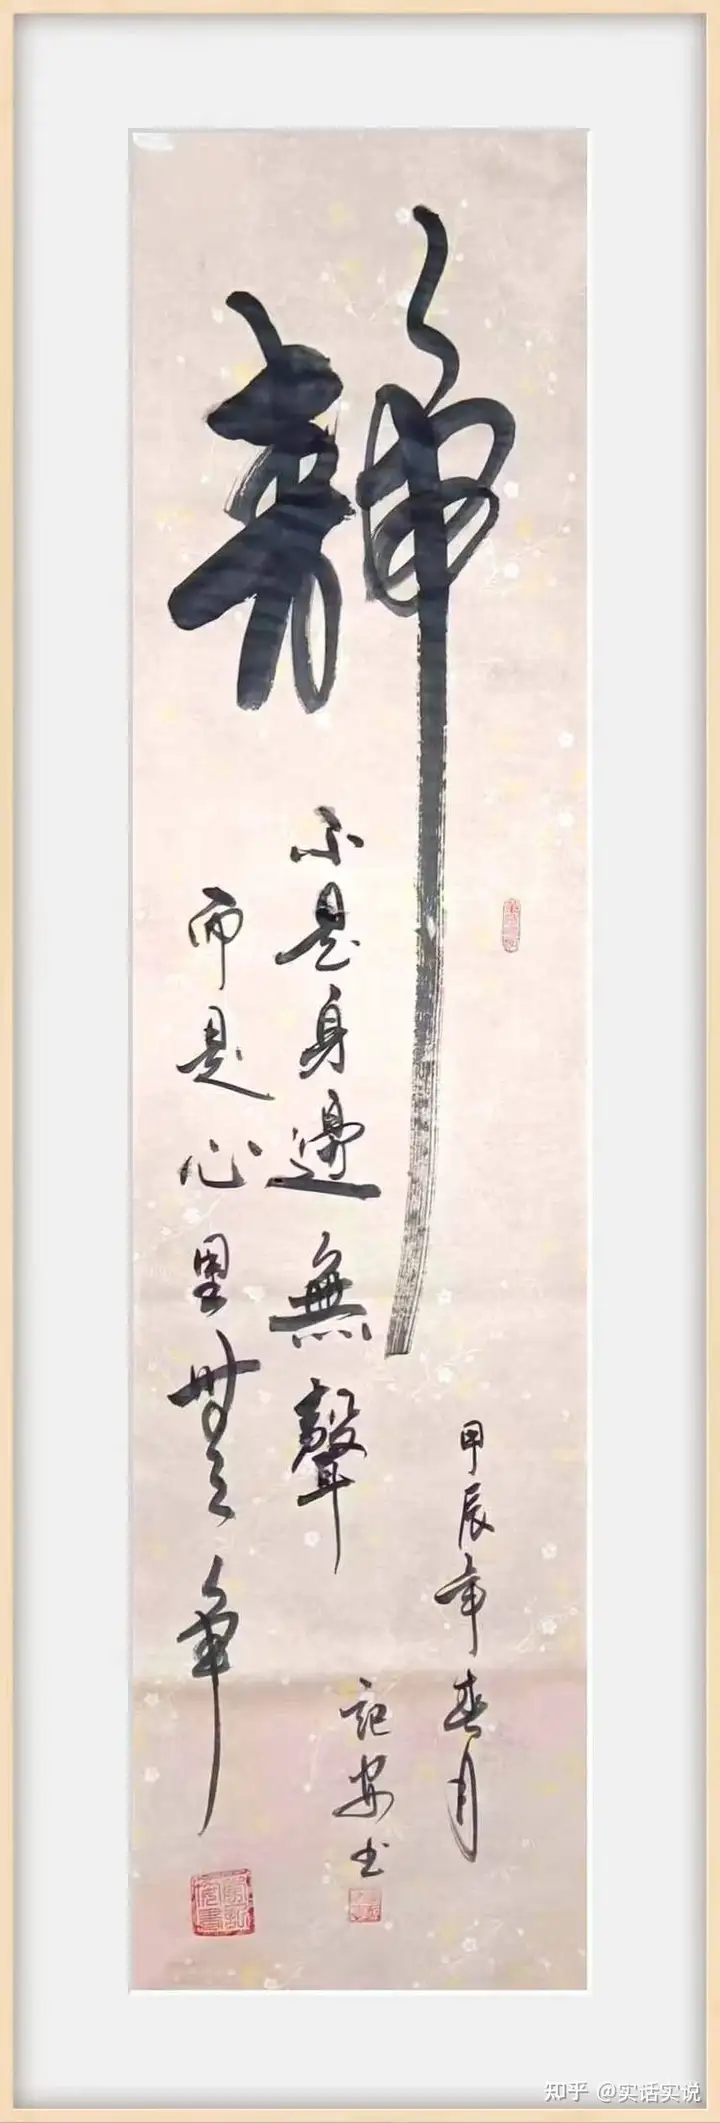 靜
不是身邊無聲
而是心里無争
甲辰年春月
記安书
知乎 @实话实说